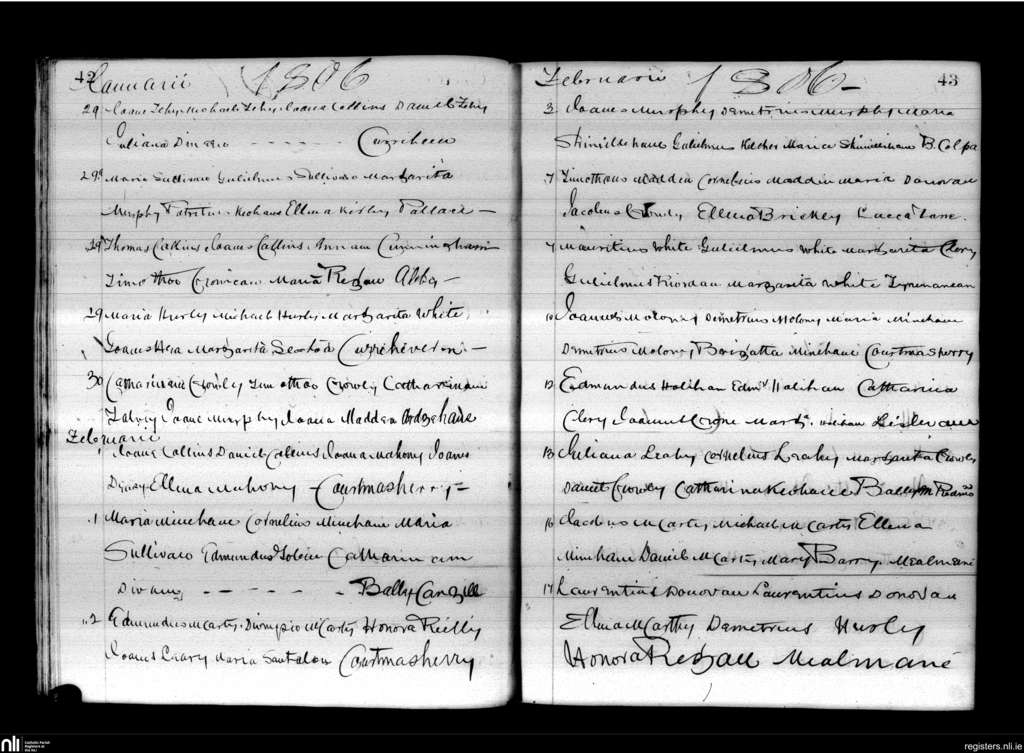 42
Januarii 1806
29 Joanes Fehily Michaels Fehily Joana Collins Daniel Fehily
Juliana Dineen - - - - - - Curraheen
29 Maria Sullivan Gulielmus Sullivan Margarita
Murphy Patritius Keohane Ellena Kirby Pallace -
29 Thomas Collins Joanes Collins Anna Cunningham
Timotheo Cronican Maria Regan Abbey -
29 Maria Hurly Michael Hurly Margarita White
Joanes Hea Margarita Curraheveren -
30 Catharina Crowly Timotheo Crowly Catharina
Joane Murphy Joana Madden
Februarii
1 Joane Collins Daniel Collins Joana Mahony Joanes
Ellena Mahony - Courtmasherry -
1 Maria Minehane Cornelius Minehane Maria
Sullivan Edmundus Tobin Catharina
- - - - - - Bally
2 Edmundus McCarty Dionysio McCarty Honora Reilly
Joanes Leary Maria Santalou Courtmasherry
Februarii 1806 -
43
3 Joanes Murphy Demetrius Murphy Maria
Gulielmus Kelcher Maria B. Colpa
7 Timotheus Madden Cornelius Madden Maria Donovan
Jacobus Crowly Ellena Brickley Lacca Lane.
7 Mauritius White Gulielmus White Margarita Clery
Gulielmus Riordan Margarita White
10 Joannes Molony Demetrius Molony Maria Minehane
Demetrius Molony Brigitta Minehane Courtmasherry
12 Edmundus Holihan Edmd Halihan Catharina
Clery Joannes Marga. Lislevane
13 Juliana Leahy Cornelius Leahy Margarita Crowly
Daniel Crowley Catharina Keohane
16 Jacobus McCarty Michael McCarty Ellena
Minehane Daniel McCarty Mary Barry Mealmané
17 Laurentius Donovan Laurentius Donovan
Ellena McCarthy Demetrius Hurley
Honora Regan Mealmané
nli
Catholic Parish Registers at the NLI
registers.nli.ie